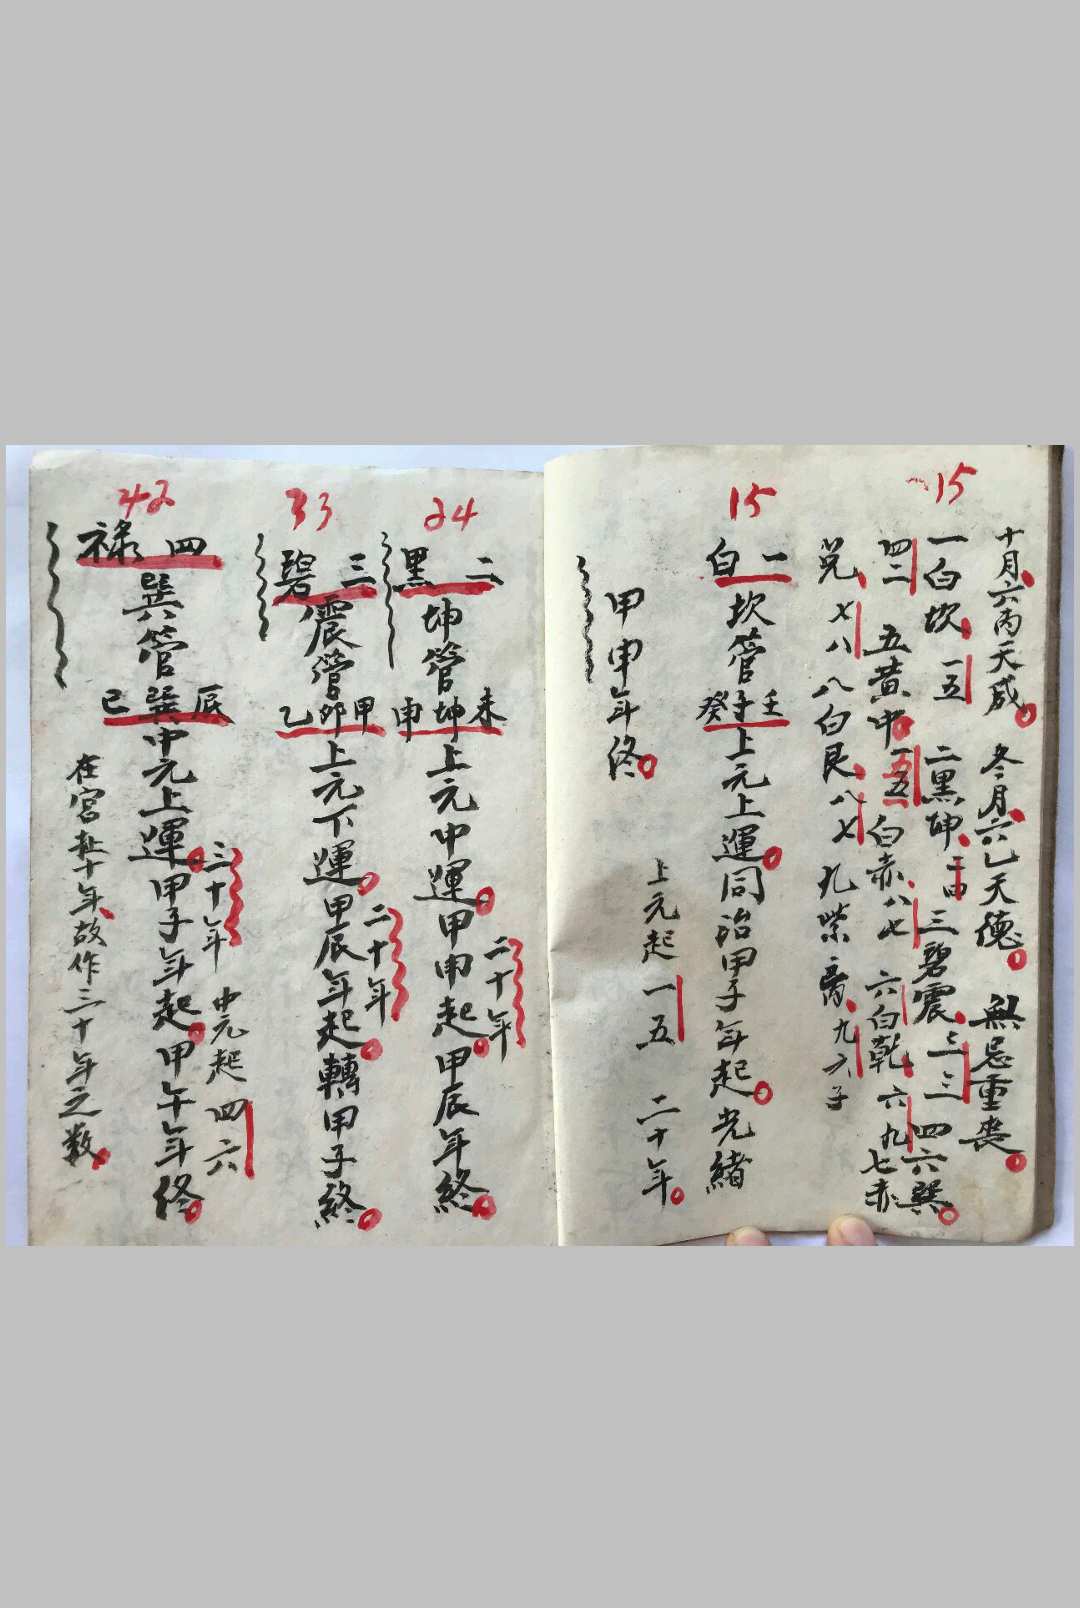 十月六丙天咸 冬月六乙天德 無忌重喪
15
一白坎 一五 二黑坤 二四 三碧震 三三 四六巽
四二 五黃中 一五 白赤八七 六白乾 六九七赤
兌 七八 八白艮 八七 九紫离九六子
15
一白
坎管壬子癸上元上運同治甲子年起光緒
甲申年終
上元起一五 二十年
24
二黑
坤管未坤申上元中運甲申起甲辰年終
二十年
33
三碧
震管甲卯乙上元下運甲辰年起轉甲子終
二十年
42
四禄
巽管辰巽巳中元上運甲子年起甲午年終
三十年 中元起四六
在宮十年故作三十年之数